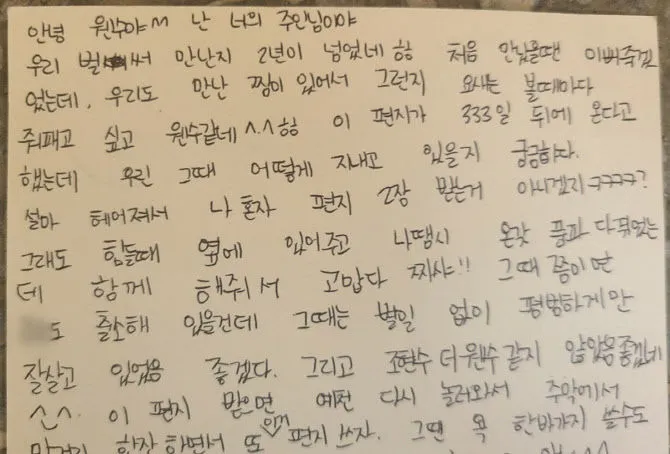 안녕 원수야^^ 난 너의 주인님이야
우리 벌써 만난지 2년이 넘었네 ㅎㅎ 처음 만났을땐 이뻐죽겠
었는데, 우리도 만난 찜이 있어서 그런지 요새는 볼때마다
줘패고 싶고 원수같네^^ㅎㅎ 이 편지가 333일 뒤에 온다고
했는데 우린 그때 어떻게 지내고 있을지 궁금하다.
설마 헤어져서 나 혼자 편지 2장 받는거 아니겠지ㅋㅋㅋㅋ?
그래도 힘들때 옆에 있어주고 나땜시 온갖 풍파 다 겪었는
데 함께 해줘서 고맙다 짜샤!! 그때 쯤이면
도 출소해 있을건데 그때는 별일 없이 평범하게만
잘살고 있었음 좋겠다. 그리고 조현수 더 원수 같지 않았음 좋겠네
^^. 이 편지 받으면 예전 다시 놀러와서 주막에서
한잔 하면서 또 편지 쓰자. 그땐 욕 한바가지 쓸수도